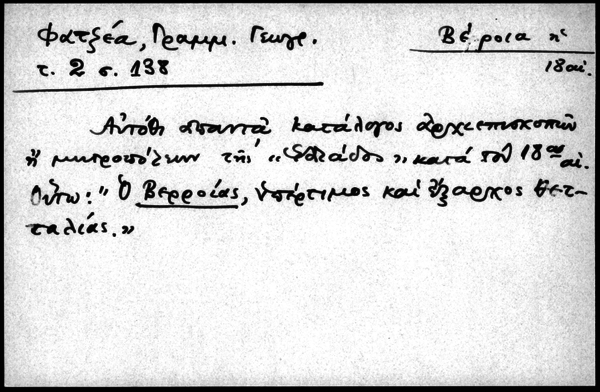 Φατζέα, Γραμμ. Γεωγρ.
τ. 2 σ. 138
Βέροια
18 αἰ.
Αὐτόθι ἀπαντᾶ κατάλογος ἀρχιεπισκοπῶν
ἢ μητροπόλεων τῆς «Ἑλλάδος» κατὰ τὸν 18ον αἰ.
Οὕτω: "Ὁ Βερροίας, ὑπέρτιμος καὶ ἔξαρχος Θετ-
ταλίας."